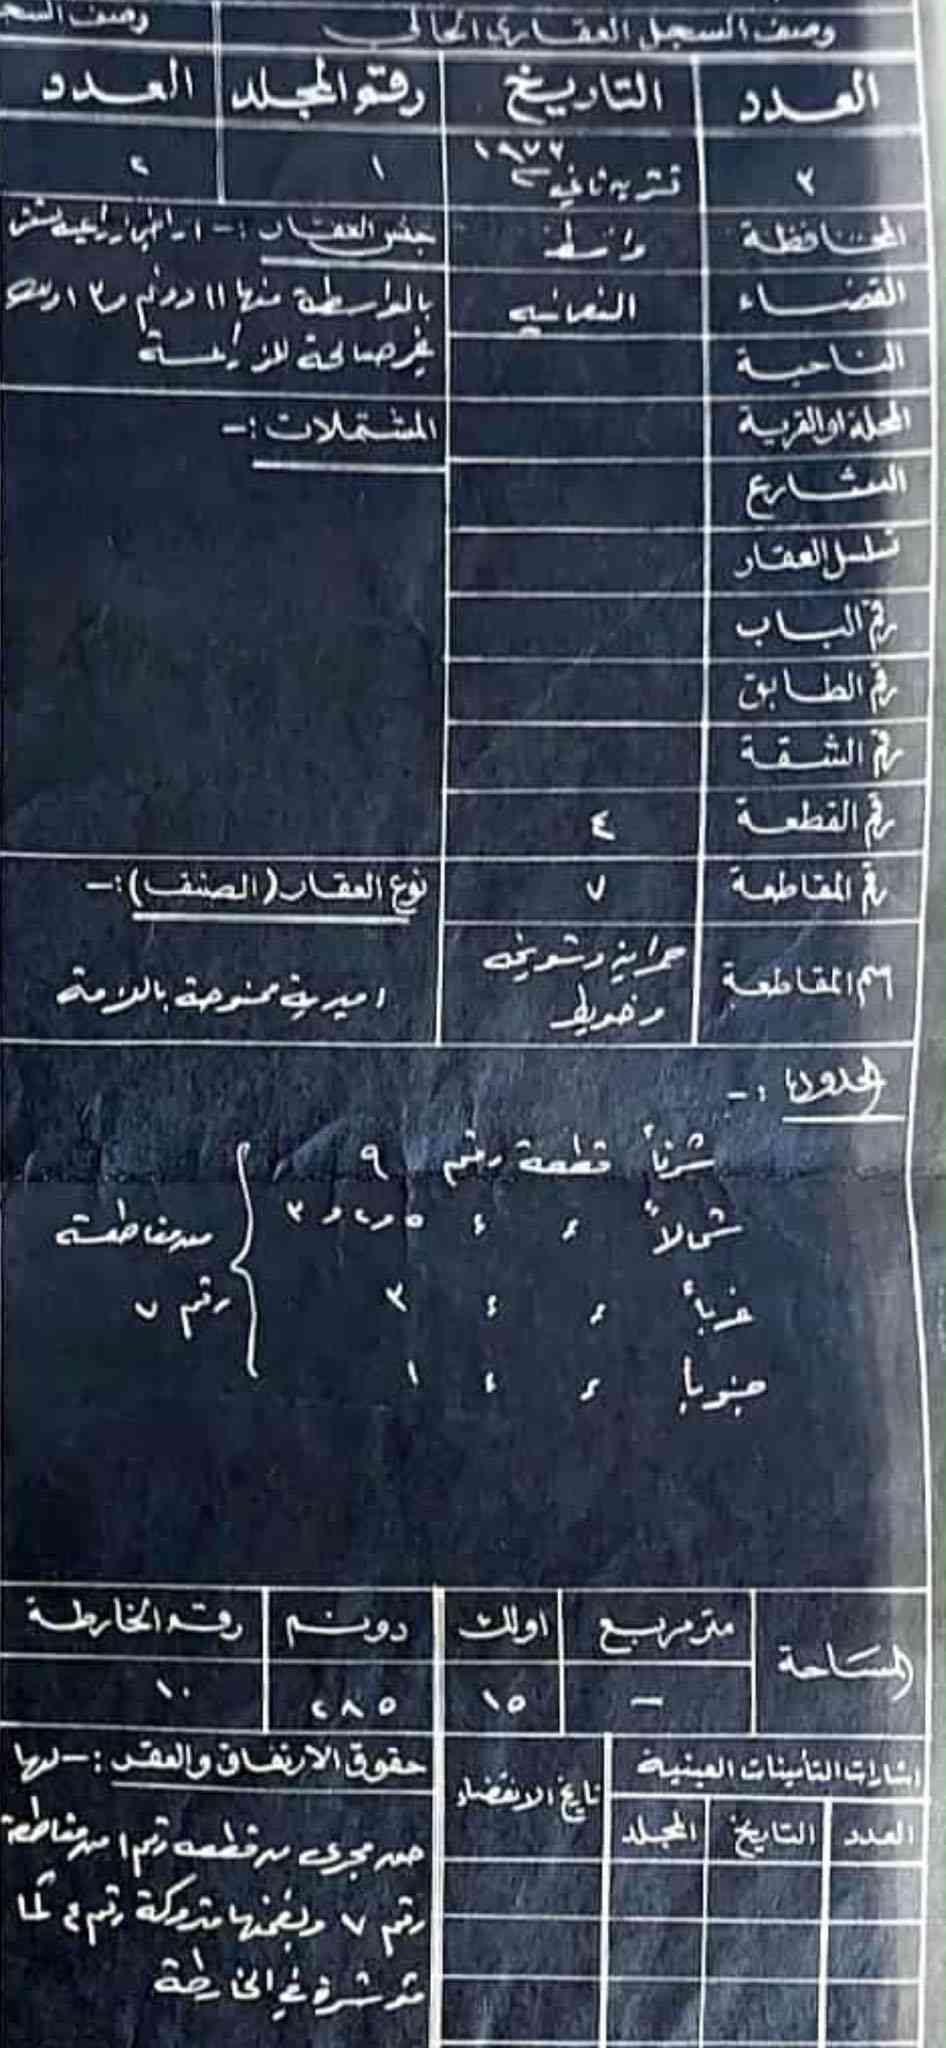 وصف السجل العقاري الحالي
وصف السجـ
العدد
التاريخ
رقم المجلد
العدد
٣
تشرين ثاني ١٩٧٢
١
٢
المحافظة
واسط
جنس العقار :- اراضي زراعية تسقى
القضاء
النعمانيه
بالواسطة منها ١١ دونم و ١٣ اولك
الناحية
غير صالحة للزراعة
المحلة او القرية
المشتملات :-
الشارع
تسلسل العقار
رقم الباب
رقم الطابق
رقم الشقة
رقم القطعة
٤
رقم المقاطعة
٧
نوع العقار (الصنف) :-
اسم المقاطعة
وشويخه
اميرية ممنوحة باللزمة
الحدود :-
شرقاً قطعة رقم ٩
شمالاً ٬ ٬ ٥ و ٢ و ٣
من مقاطعة
غرباً ٬ ٬ ٣
رقم ٧
جنوباً ٬ ٬ ١
المساحة
متر مربع
اولك
دونم
رقم الخارطة
—
١٥
٢٨٥
١٠
اشارات التأمينات العينية
تاريخ الانقضاء
حقوق الارتفاق والعقر :- لها
العدد
التاريخ
المجلد
حق مجرى من قطعه رقم ١ من مقاطعة
رقم ٧ متروكة رقم ٢ كما
مؤشرة في الخارطة